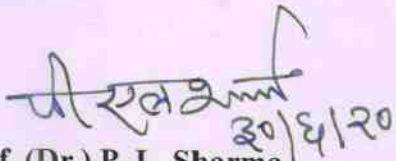 पी एल शर्मा
३०/६/२०
f (Dr.) P. L. Sharma